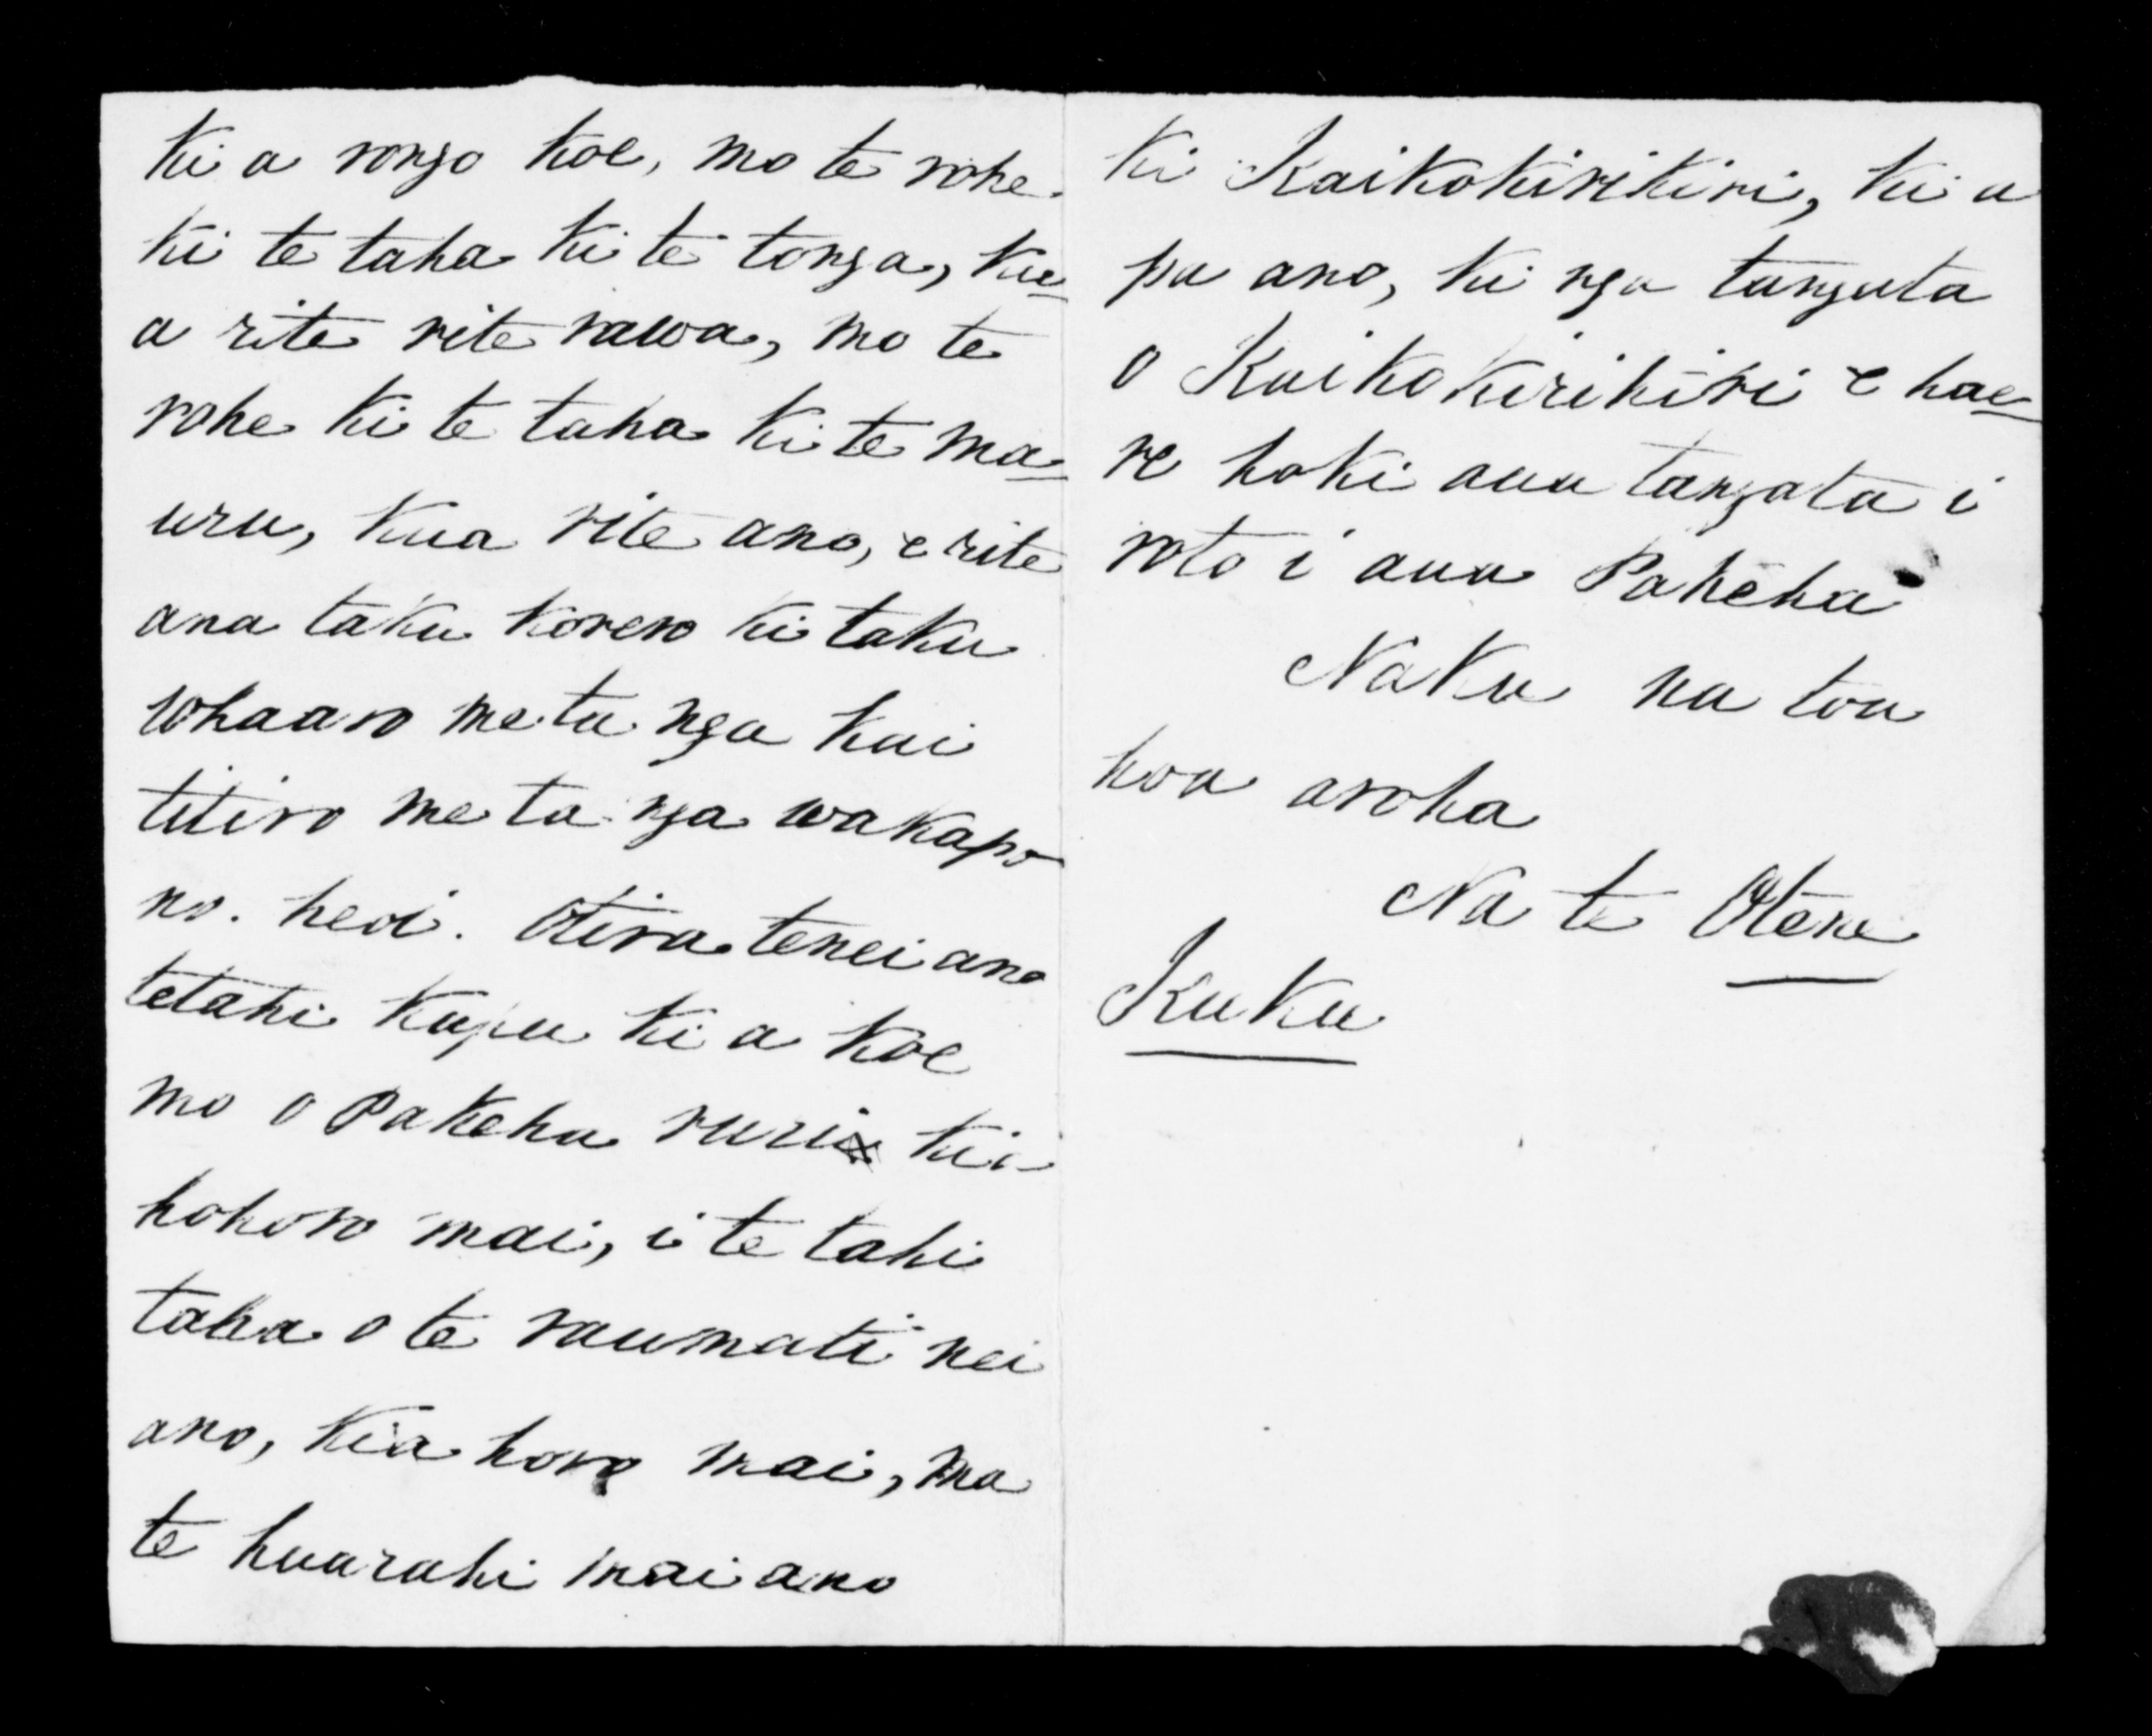 Ki a rongo koe, mo te rohe
ki te taha ki te tonga, ku-
a rite rite rawa, mo te
rohe ki te taha ki te ma-
uru, kua rite ano, e rite
ana taku korero ki taku
whaaro me ta nga kai
titiro me ta nga wakapo-
no. heoi. Otira tenei ano
tetahi kupu ki a koe
mo o Pakeha ruri kia
hohoro mai, i te tahi
taha o te raumati nei
ano, kia horo mai, ma
te huarahi mai ano
ki Kaikokirikiri, ki a
pa ano, ki nga tangata
o Kaikokirikiri e hae-
re hoki aua tangata i
roto i aua Pakeha
Naku na tou
hoa aroha
Na te Otene
Kuku